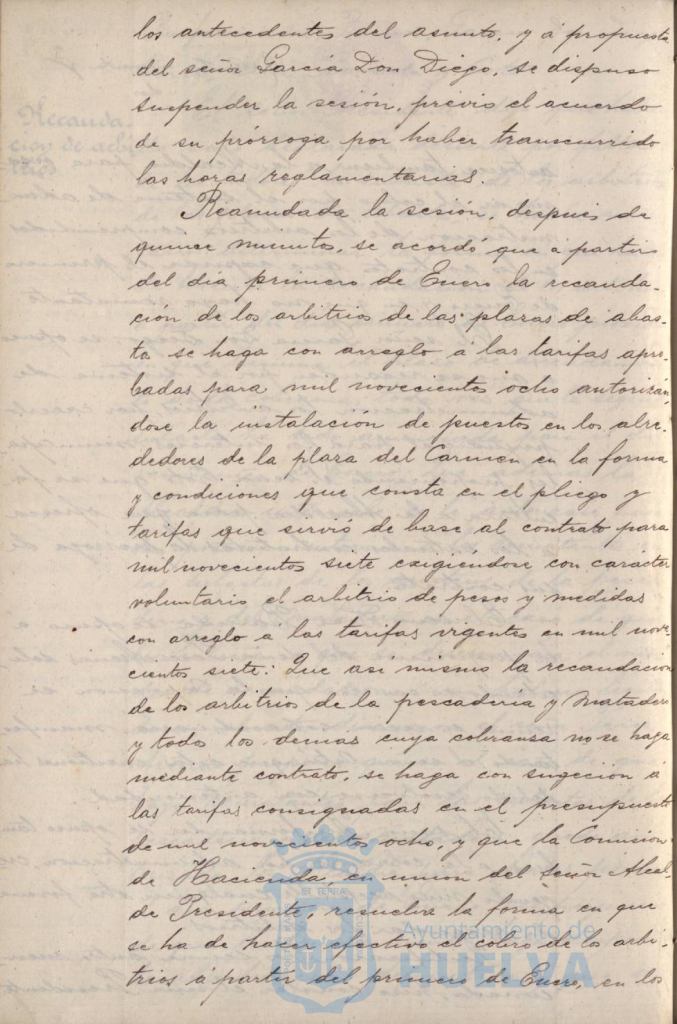 los antecedentes del asunto, y á propuesta
del señor García Don Diego, se dispuso
suspender la sesión, previo el acuerdo
de su prórroga por haber transcurrido
las horas reglamentarias.
Reanudada la sesión, después de
quince minutos, se acordó que á partir
del dia primero de Enero la recauda-
ción de los arbitrios de las plazas de abas-
to se haga con arreglo á las tarifas apro-
badas para mil novecientos ocho autorizán
dose la instalación de puestos en los alre-
dedores de la plaza del Carmen en la forma
y condiciones que consta en el pliego y
tarifas que sirvió de base al contrato para
mil novecientos siete exigiéndose con carácter
voluntario el arbitrio de pesos y medidas
con arreglo á las tarifas vigentes en mil nove-
cientos siete: Que asi mismo la recaudación
de los arbitrios de la pescadería y Matadero
y todos los demas cuya cobranza no se haga
mediante contrato, se haga con sugeción á
las tarifas consignadas en el presupuesto
de mil novecientos ocho, y que la Comisión
de Hacienda, en unión del señor Alcal-
de Presidente, resuelva la forma en que
se ha de hacer efectivo el cobro de los arbi-
trios á partir del primero de Enero, en los
Recauda-
ción de arbi
trios
Ayuntamiento de
HUELVA